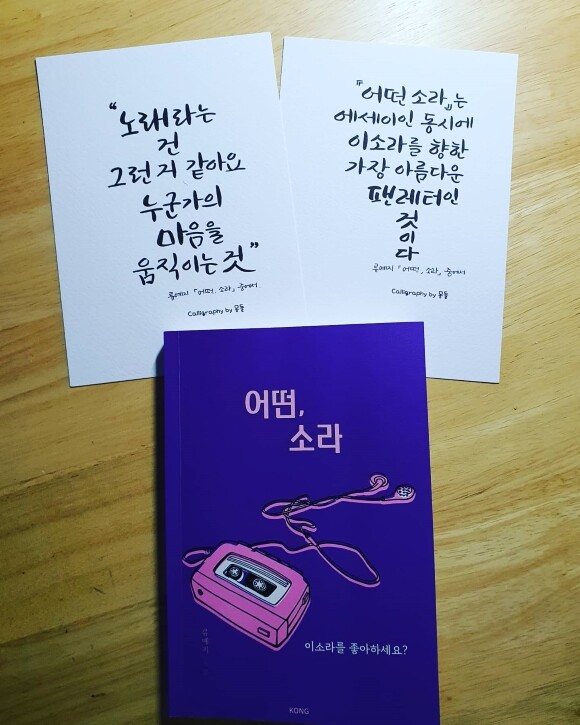 “노래라는
건
그런 거 같아요
누군가의
마음을
움직이는 것”
「어떤, 소라」 중에서.
Calligraphy by 몽돌
『어떤 소라』는
에세이인 동시에
이소라를 향한
가장 아름다운
팬레터인
것
이
다
「어떤, 소라」 중에서
Calligraphy by 몽돌
어떤,
소라
이소라를 좋아하세요?
KONG